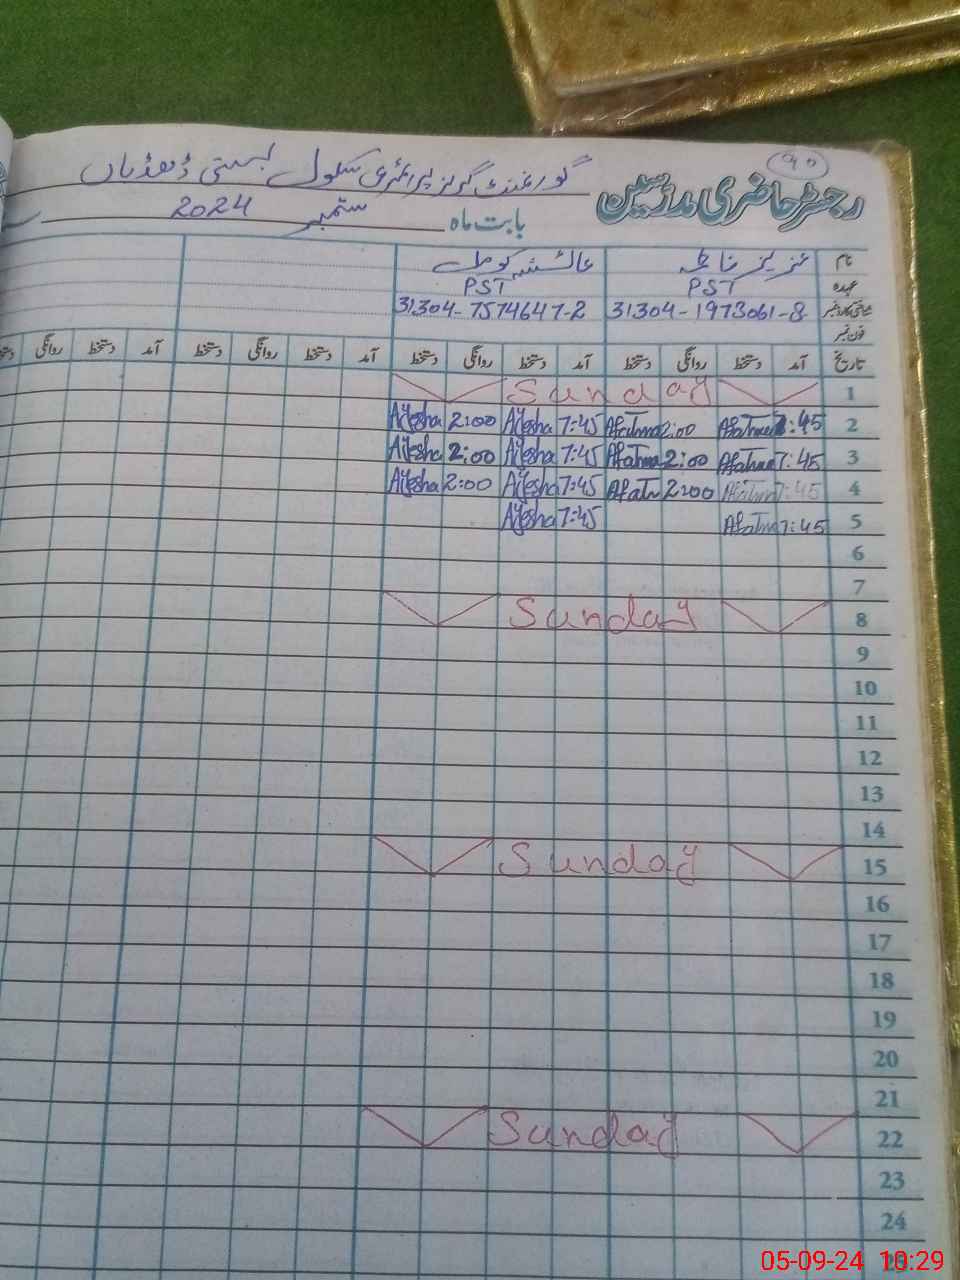 90
گورنمنٹ گرلز پرائمری سکول بستی
رجسٹر حاضری مدرّسین
بابت ماہ ستمبر 2024
نام فاطمہ عائشہ کومل
عہدہ PST PST
31304-1973061-8 31304-7574647-2
فون نمبر
تاریخ آمد دستخط روانگی دستخط آمد دستخط روانگی دستخط آمد دستخط روانگی دستخط آمد دستخط روانگی
1 Sunday
2 7:45 Afatma 2:00 Afatima 7:45 Ayesha 2:00 Ayesha
3 7:45 Afatma 2:00 Afatma 7:45 Ayesha 2:00 Ayesha
4 7:45 Afatma 2:00 Afatm 7:45 Ayesha 2:00 Ayesha
5 7:45 Afatma 7:45 Ayesha
6
7
8 Sunday
9
10
11
12
13
14
15 Sunday
16
17
18
19
20
21
22 Sunday
23
24
25
05-09-24 10:29